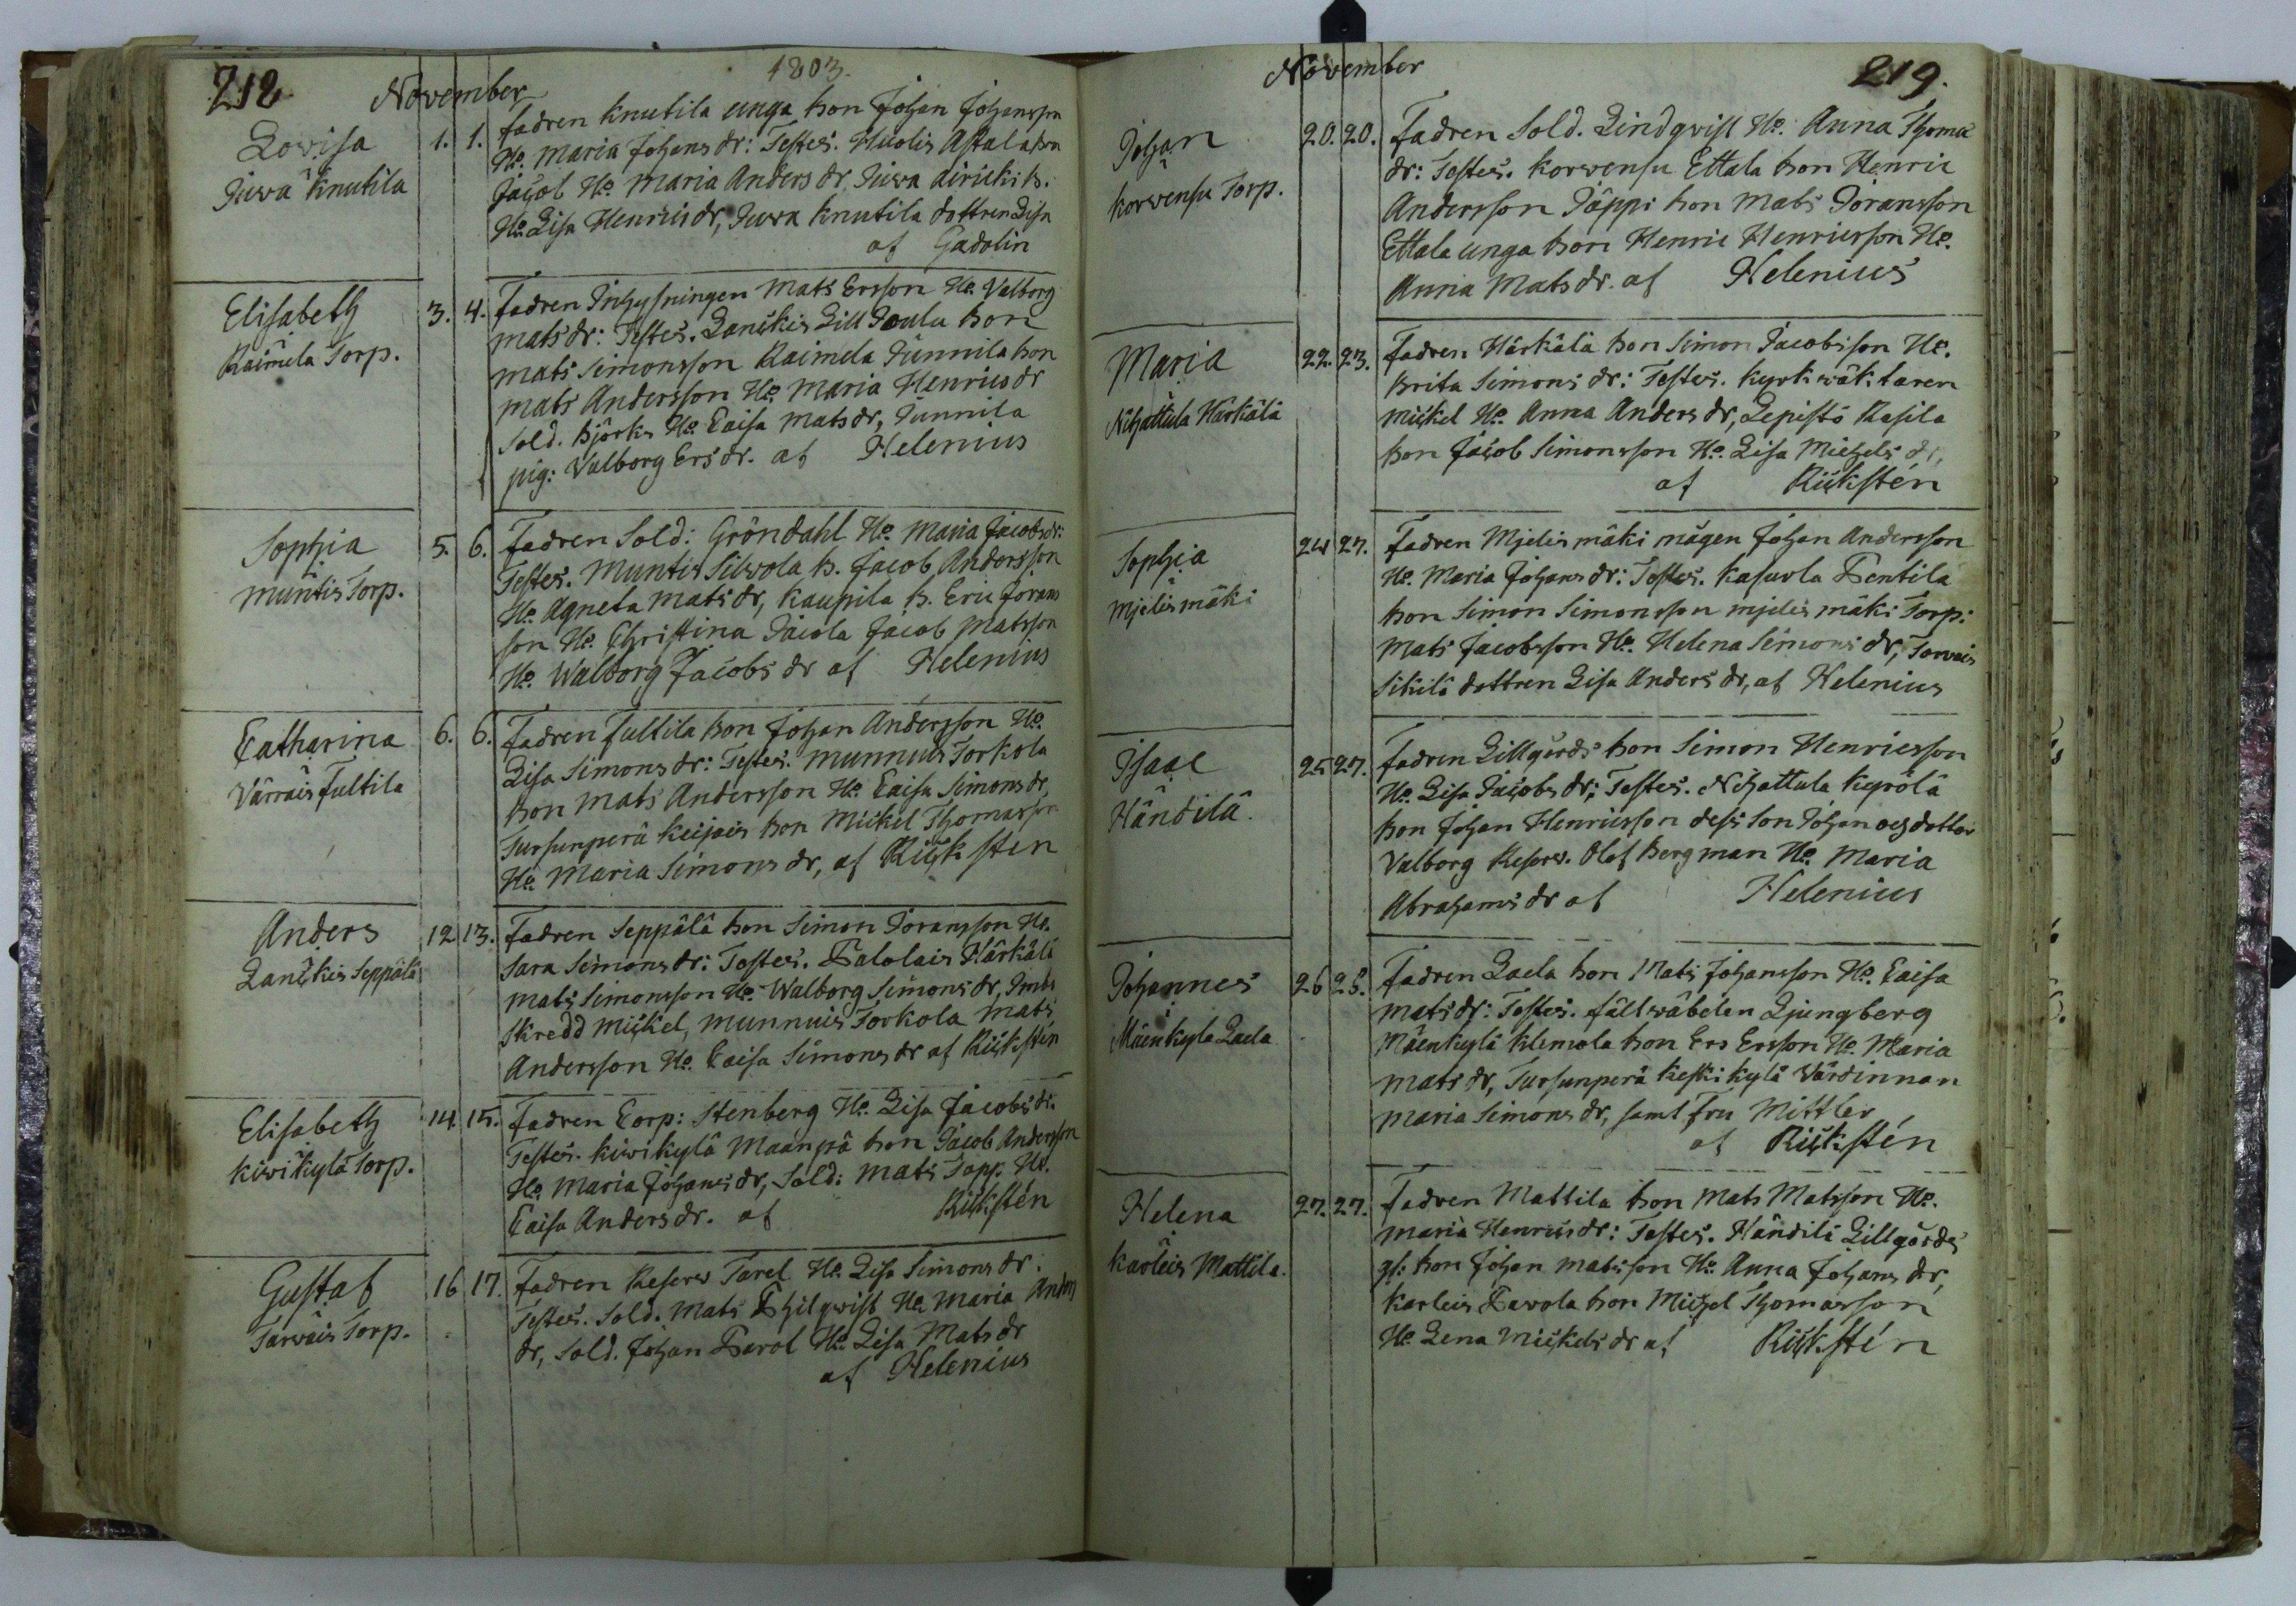 218
November
1803.
Lovisa
Juva Knutila
1. 1.
Fadren Knutila unga bon Johan Johansson
Ho. Maria Johans dr: Testes. Huolis Astala bon
Jacob Ho. Maria Anders dr, Juva Kiricki b.
Ho. Lisa Henrics dr, Juva Knutila dottren Lisa
af Gadolin
Elisabeth
Raimela Torp.
3. 4.
Fadren Inhysningen Mats Ersson Ho. Valborg
Mats dr: Testes. Lanskis Lill Joula bon
Mats Simonsson Raimela Junnila bon
Mats Andersson Ho. Maria Henrics dr
Sold. Björks Ho. Caisa Mats dr, Junnila
pig: Valborg Ers dr. af Helenius
Sophia
Muntis Torp.
5. 6.
Fadren Sold: Gröndahl Ho. Maria Jacobs dr:
Testes. Muntis Silvola b. Jacob Andersson
Ho. Agneta Mats dr, Kaupila b. Eric Jörans
son Ho. Christina Jacola Jacob Matsson
Ho. Walborg Jacobs dr af Helenius
Catharina
Värrais Fultila
6. 6.
Fadren Fultila bon Johan Andersson Ho.
Lisa Simons dr: Testes. Munnuis Torkola
bon Mats Andersson Ho. Caisa Simons dr,
Tursunperä Keijais bon Mickel Thomasson
Ho. Maria Simons dr, af Rickstén
Anders
Lanskis Seppälä
12 13.
Fadren Seppälä bon Simon Jöransson Ho.
Sara Simons dr: Testes. Palolais Härkälä
Mats Simonsson Ho. Walborg Simons dr,
Skredd Mickel, Munnuis Torkola Mats
Andersson Ho. Caisa Simons dr af Rickstén
Elisabeth
Kiwikylä Torp.
14. 15.
Fadren Corp: Stenberg Ho. Lisa Jacobs dr.
Testes. Kiwikylä Maanpä bon Jacob Andersson
Ho. Maria Johans dr, Sold: Mats Topp Ho.
Caisa Anders dr. af Rickstén
Gustaf
Tarvais Torp.
16 17.
Fadren Reserv Tarel Ho. Lisa Simons dr:
Testes. Sold. Mats Philqvist Ho. Maria Anders
dr, Sold. Johan Parol Ho. Lisa Mats dr
af Helenius
November
219.
Johan
Korvensu Torp.
20. 20.
Fadren Sold. Lindqvist Ho. Anna Thoma
dr: Testes. Korvensu Ettala bon Henric
Andersson Jäppi bon Mats Jöransson
Ettala unga bon Henric Henricsson Ho.
Anna Mats dr. af Helenius
Maria
Nihattula Härkälä
22. 23.
Fadren Härkälä bon Simon Jacobsson Ho.
Brita Simons dr: Testes. Kyrkwäktaren
Mickel Ho. Anna Anders dr, Lepistö Rasila
bon Jacob Simonsson Ho. Lisa Michels dr,
af Rickstén
Sophia
Mjelismäki
24 27.
Fadren Mjelismäki mågen Johan Andersson
Ho. Maria Johans dr: Testes. Kasurla Pentila
bon Simon Simonsson Mjelismäki Torp:
Mats Jacobsson Ho. Helena Simons dr, Torvais
Sikilä dottren Lisa Anders dr, af Helenius
Isaac
Händilä.
25 27.
Fadren Lillgårds bon Simon Henricsson
Ho. Lisa Jacobs dr: Testes. Nihattula Kyrölä
bon Johan Henricsson dess son Johan och dotter
Valborg Reserv. Olof Bergman Ho. Maria
Abrahams dr af Helenius
Johannes
Mäenkylä Laela
26 28.
Fadren Laela bon Mats Johansson Ho. Caisa
Mats dr: Testes. fältwäbelen Ljungberg
Mäenkylä Klemola bon Ers Ersson Ho. Maria
Mats dr, Tursunperä Keskikylä Värdinnan
Maria Simons dr, samt Fru Mittler
af Rickstén
Helena
Karleis Mattila.
27. 27.
Fadren Mattila bon Mats Matsson Ho.
Maria Henrics dr: Testes. Händilä Lillgårds
gl: bon Johan Matsson Ho. Anna Johans dr,
Karleis Pavola bon Michel Thomasson
Ho. Lena Mickels dr af Rickstén